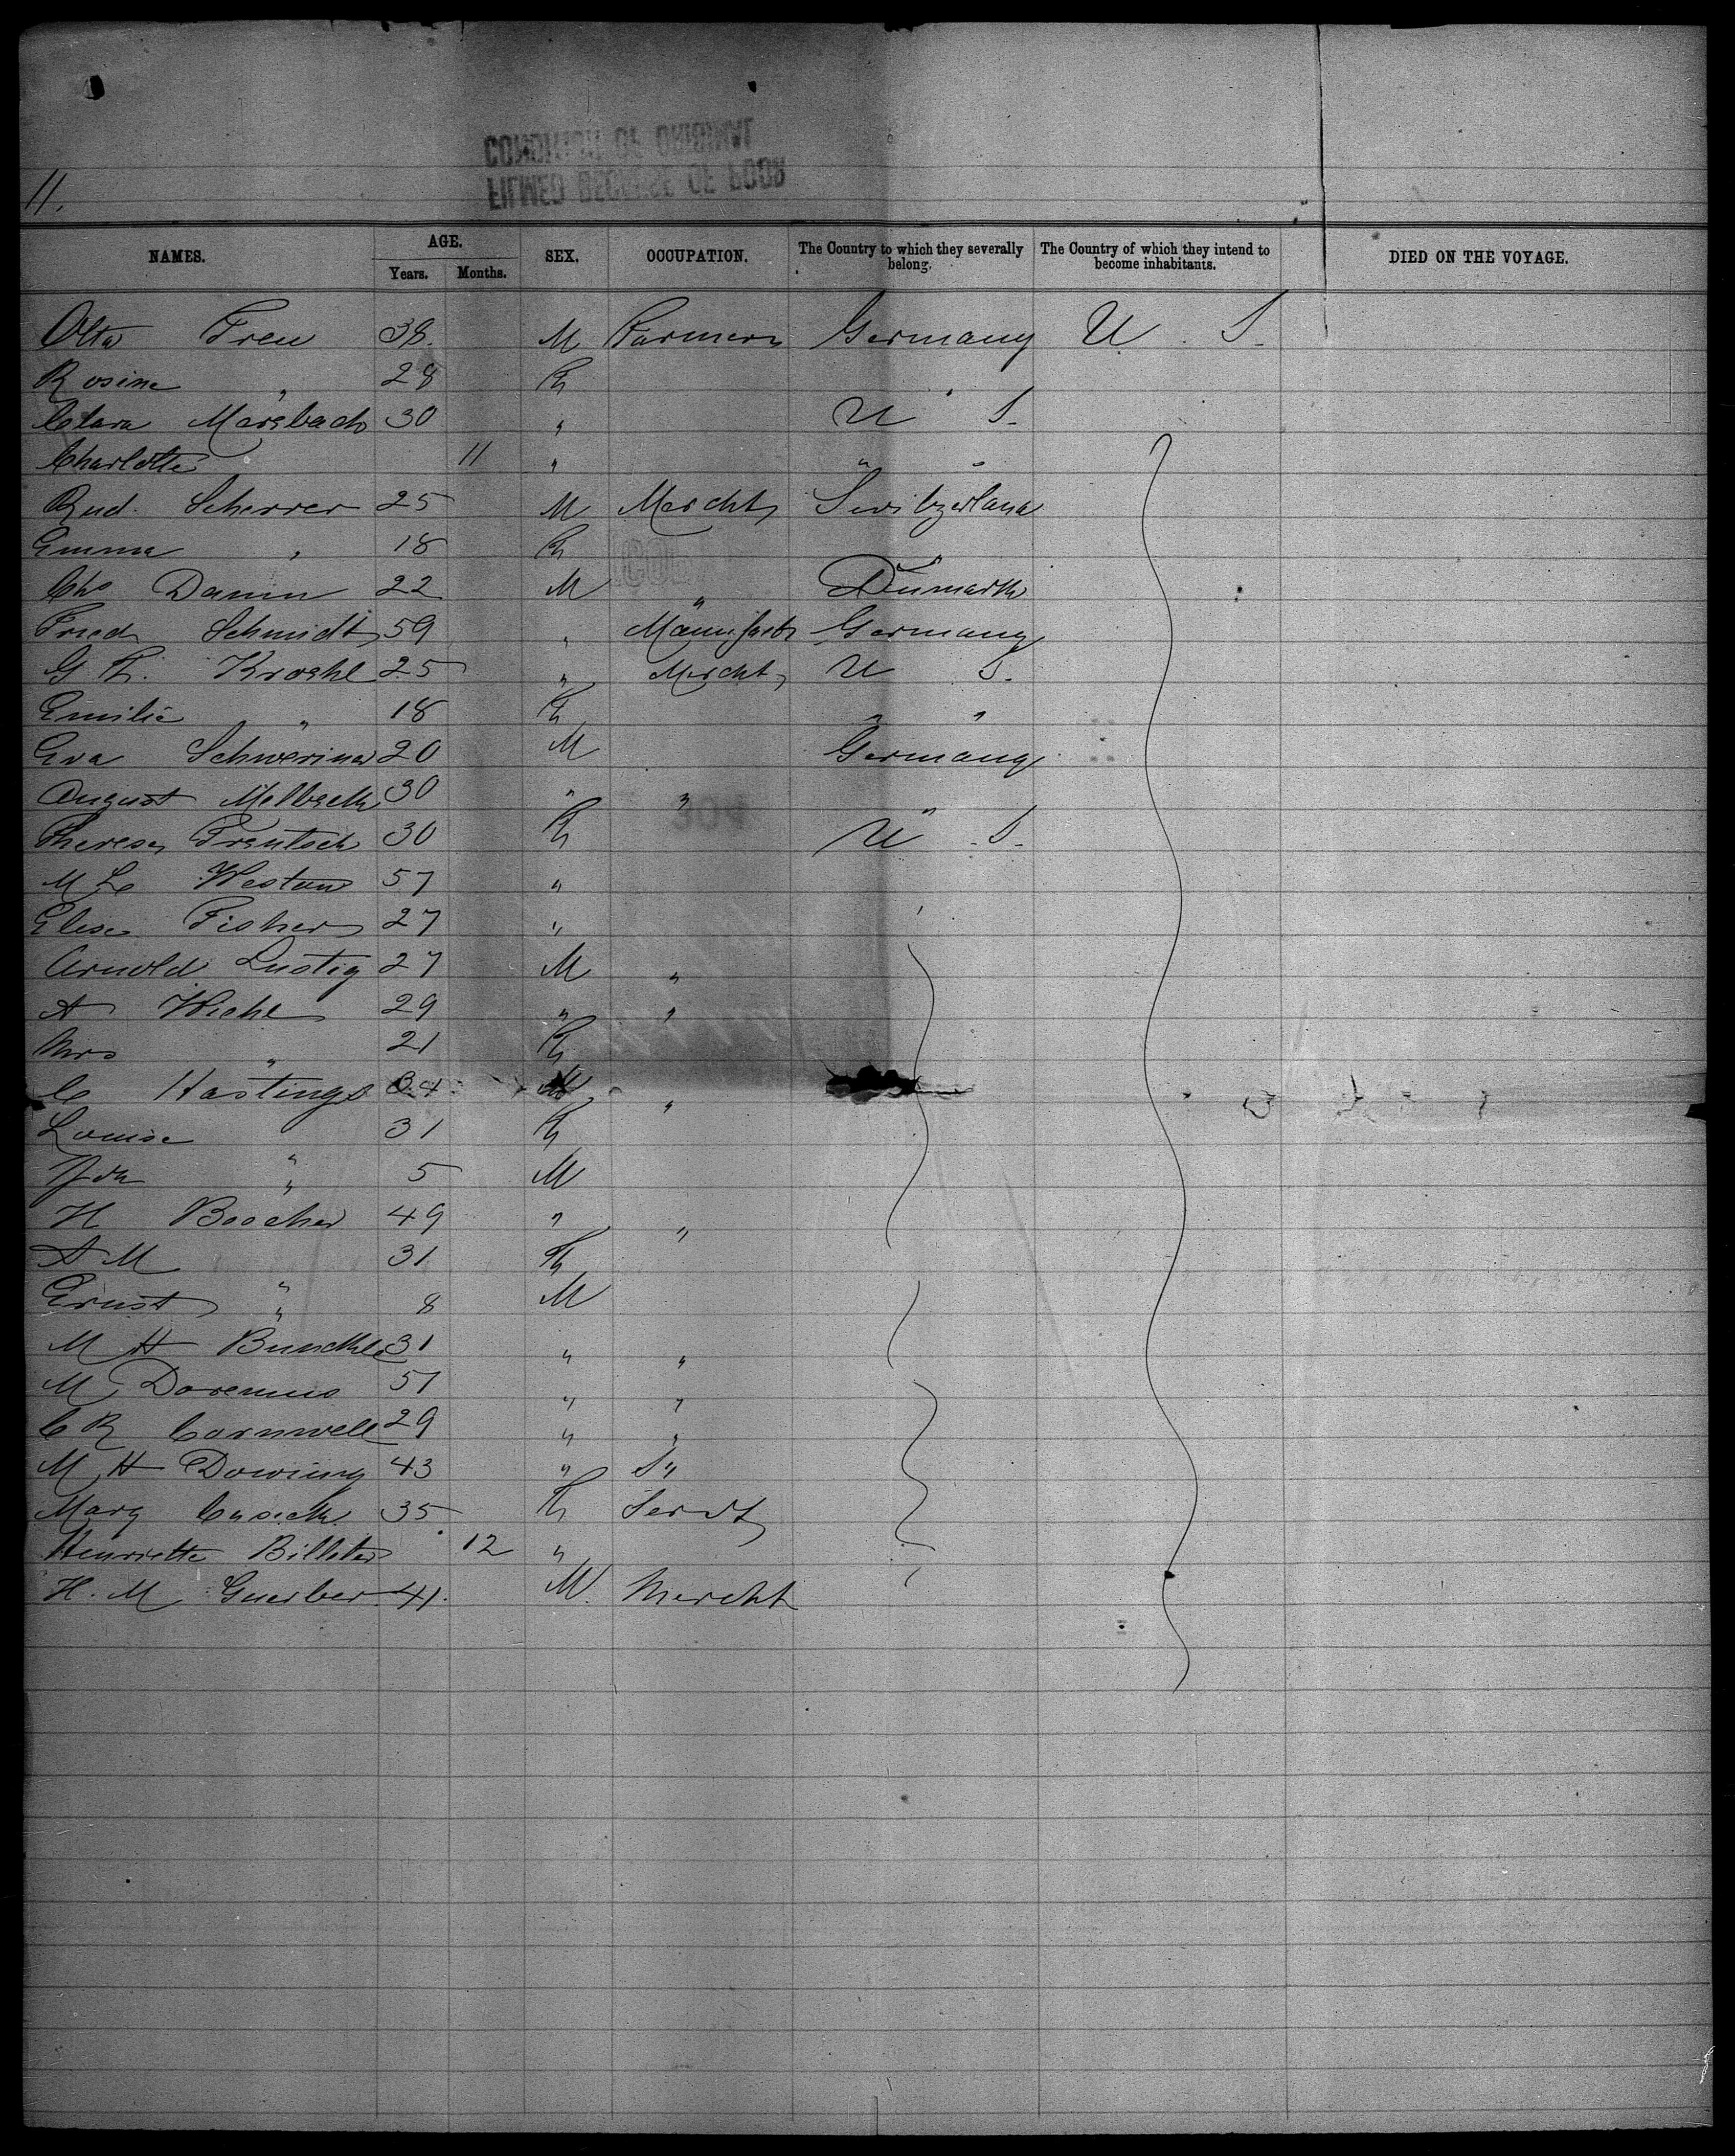 CONDITION OF ORIGINAL
FILMED BECAUSE OF POOR
11.
NAMES. AGE. SEX. OCCUPATION. The Country to which they severally belong. The Country of which they intend to become inhabitants. DIED ON THE VOYAGE.
Years. Months.
Otto Freu 38. M Farmer Germany U. S.
Rosine " 28 Fh
Clara Marsbach 30 " U S.
Charlotte " 11 " " "
Rud. Scherrer 25 M Mercht Switzerland
Emma " 18 Fh "
Chs Damm 22 M " Denmark
Fried Schmidt 59 " Manufact Germany
G. F. Kroehl 25 " Mercht U S.
Emilie " 18 Fh " "
Eva Schweriner 20 M Germany
August Melbeck 30 " " "
Therese Frentsch 30 Fh U S.
M Le Weston 57 "
Elise Fisher 27 "
Arnold Lustig 27 M "
A Wiehl 29 " "
Mrs " 21 Fh
C Hastings 34 M "
Louise " 31 Fh
" 5 M
H Boocher 49 " "
A M " 31 Fh
Ernst " 8 M
M H 31 " "
M Doremus 51 " "
C R Cornwell 29 " "
M H Dowing 43 "
Mary Cusick 35 Fh Servt
Henriette Billeter 12 "
H. M Guerber 41. M. Mercht